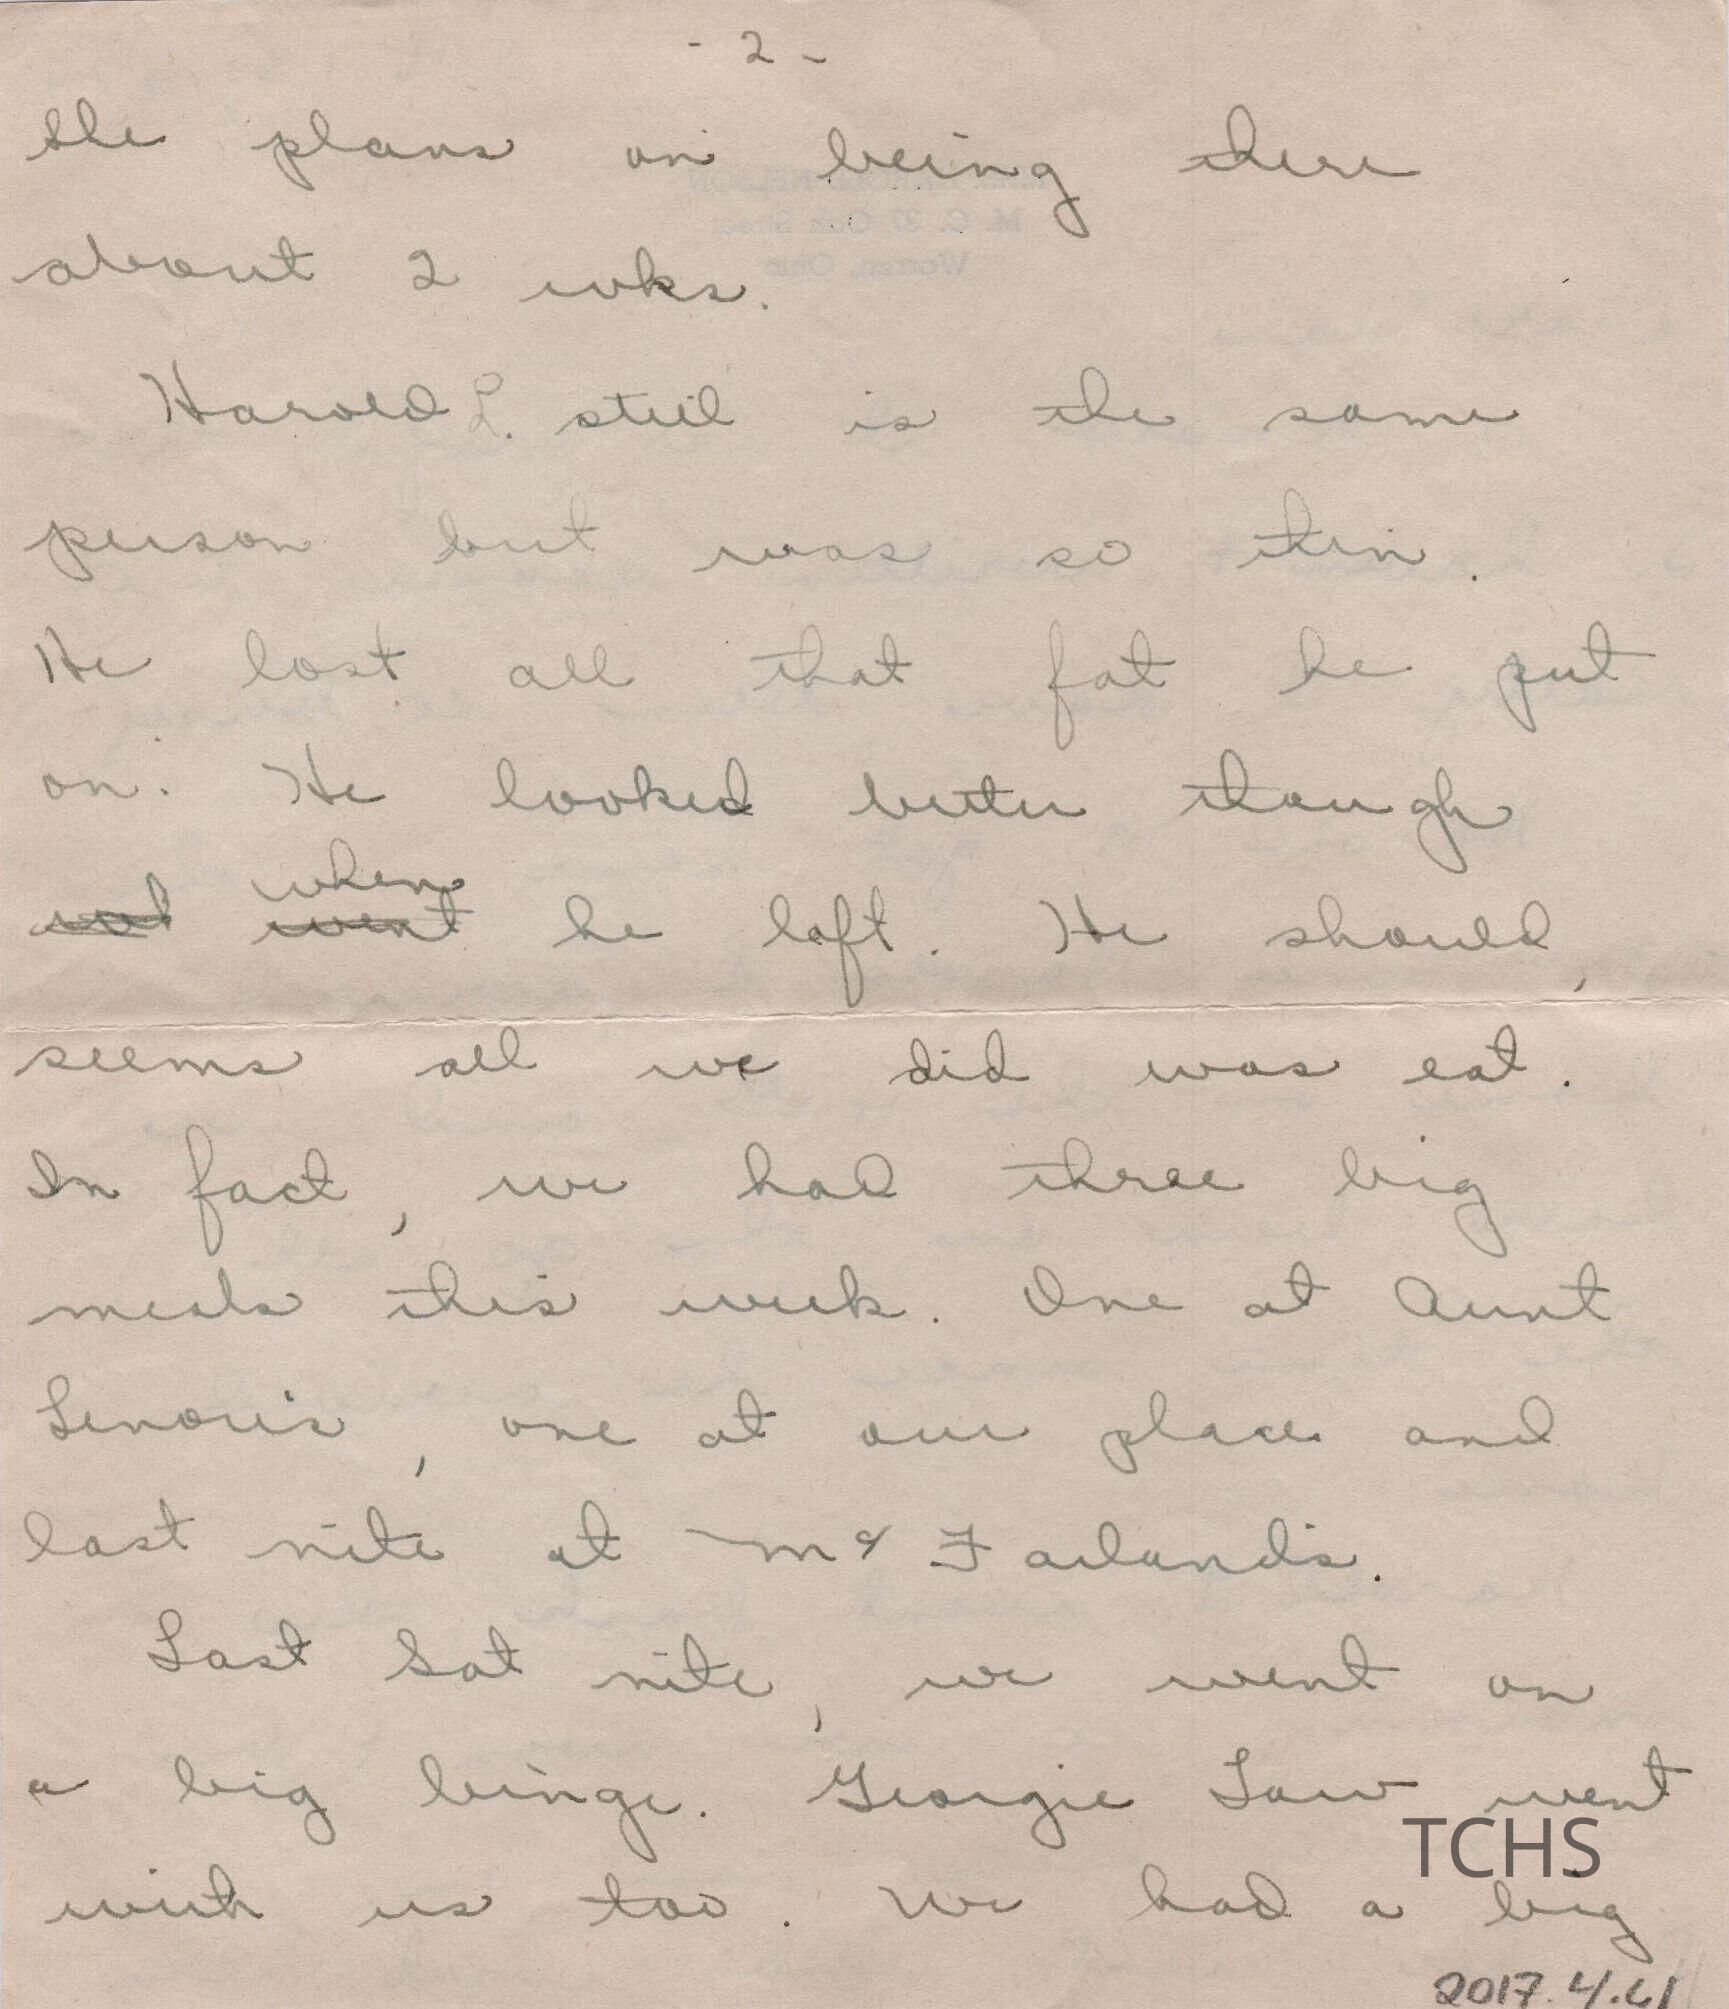 - 2 -
She plans on being there
about 2 wks.
Harold L. still is the same
person but was so thin.
He lost all that fat he put
on. He looked better though
when
went he left. He should,
seems all we did was eat.
In fact, we had three big
meals this week. One at Aunt
Lenore's, one at our place and
last nite at McFarland's.
Last Sat nite, we went on
a big binge. Georgie Law went
with us too. We had a big
TCHS
2017.4.61
M. C. 37 Oak Street
Warren, Ohio